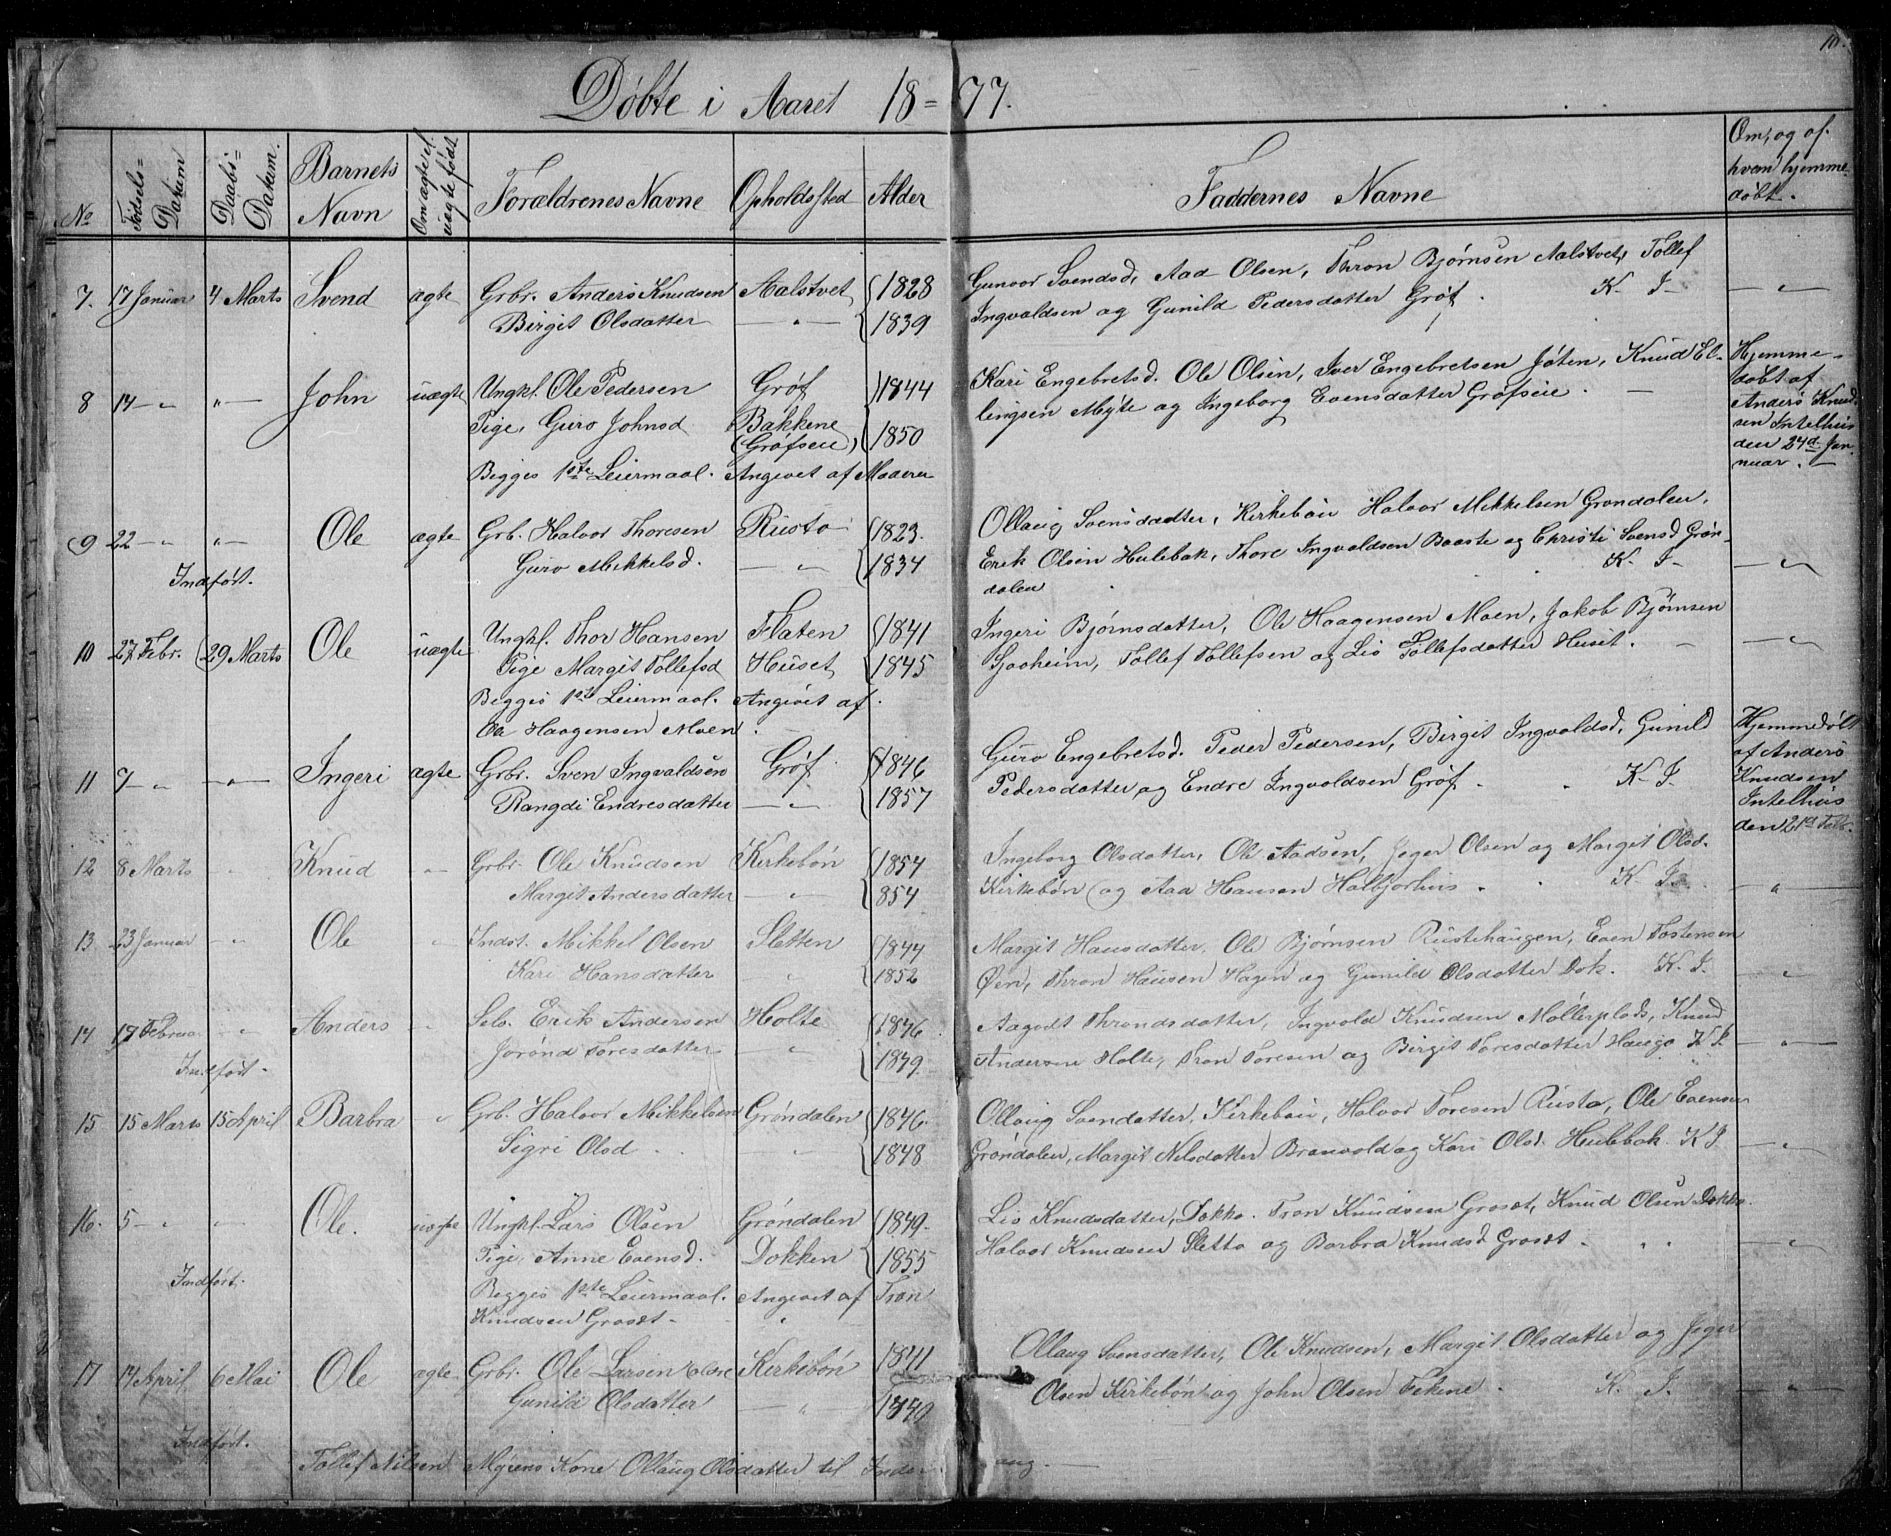 10.
Døbte i Aaret 18=77.
No
Fødsels= Datum
Daabs= Datum.
Barnets Navn
Om ægte el. uægte født
Forældrenes Navne
Opholdssted
Alder
Faddernes Navne
Om, og af hvem hjemmedøbt.
7. 17 Januar 4 Marts Svend ægte Grbr. Anders Knudsen Aalstvet 1828
Birgit Olsdatter — " — 1839
Gunvor Svendsd, Aad Olsen, Thron Bjørnsen Aalstvet, Tollef
Ingvaldsen og Gunild Pedersdatter Grøf. K. I. — " —
8 14 — " " — John uægte Ungkl. Ole Pedersen Grøf 1844
Pige, Guro Johnsd Bakkene (Grøfseie) 1850
Begges 1ste Leiermaal. Angivet af Moderen
Kari Engebretsd. Ole Olsen, Iver Engebretsen Jøten, Knud El-
lingsen Myte og Ingeborg Evensdatter Grøfseie. —
Hjemme-
døbt af
Anders Knud-
sen Intelhus
den 24d. Jan-
nuar. —
9 22 — " " — Ole ægte Grb. Halvor Thoresen Rusto 1823.
Guro Mikkelsd. — " — 1834
Indført.
Ollaug Svensdatter, Kirkebøn Halvor Mikkelsen Grøndalen,
Erik Olsen Hulebak, Thore Ingvaldsen Baaste og Christi Svensd Grøn-
dalen K. I. — " —
10 27 Febr. 29 Marts Ole uægte Ungkl. Thor Hansen Flaten 1841
Pige Margit Tollefsd Huset 1845
Begges 1ste Leiermaal. Angivet af
Ole Haagensen Moen.
Ingeri Bjørnsdatter, Ole Haagensen Moen, Jakob Bjørnsen
Gaaheim, Tollef Tollefsen og Liv Tollefsdatter Huset. — — " —
11 7 — " — " — Ingeri ægte Grbr. Sven Ingvaldsen Grøf 1846
Rangdi Endresdatter — " — 1857
Guro Engebretsd. Peder Pedersen, Birgit Ingvaldsd, Gunild
Pedersdatter og Endre Ingvoldsen Grøf. K. I.
Hjemmedøbt
af Anders
Knudsen
Intelhus
den 21d Feb.
12 8 Marts " Knud — " — Grbr. Ole Knudsen Kirkebøn 1854
Margit Andersdatter — " — 854
Ingeborg Olsdatter, Ole Aadsen, Jeger Olsen og Margit Olsd.
Kirkebøn og Aad Hansen Halbjorhus. K. I. — " —
13. 23 Januar — " Ole " Indst. Mikkel Olsen Sletten 1844
Kari Hansdatter " 1852
Margit Hansdatter. Ole Bjørnsen Rustehaugen, Even Tostensen
Øen, Thron Hansen Hagen og Gunild Olsdatter Dok. K. I. — " —
14 17 Februar " Anders " Selv. Erik Andersen Holte 1846
Jorønd Toresdatter — " — 1849.
Indført.
Aagodt Throndsdatter, Ingvold Knudsen Møllerplads, Knud
Andersen Holte, Tron Toresen og Birgit Toresdatter Hauge K I. — " —
15 15 Marts 15 April Barbra " Grb. Halvor Mikkelsen Grøndalen 1846.
Sigri Olsd. — " — 1848
Ollaug Svendatter, Kirkebøn, Halvor Toresen Rusto, Ole Evensen
Grøndalen, Margit Nilsdatter Branvold og Kari Olsd. Hulebak. K I. — " —
16. 5 — " — " — Ole. uægte Ungkl. Lars Olsen Grøndalen 1849.
Pige, Anne Evensd. Dokken 1855
Indført.
Begges 1ste Leiermaal. Angivet af Tron
Knudsen Groset.
Liv Knudsdatter, Dokko. Tron Knudsen Groset, Knud Olsen Dokko
Halvor Knudsen Sletto og Barbra Knudsd Groset. " " — " —
17 14 April 6 Mai Ole ægte. Grbr. Ole Larsen Kirkebøn 1841
Gunild Olsdatter — " — 1849
Indført.
Ollaug Svensdatter, Ole Knudsen, Margit Olsdatter og Jeger
Olsen Kirkebøn og John Olsen Fekene. K. I. — " —
Tollef Nilsen Myrens Kone Ollaug Olsdatter til Inde- gang —